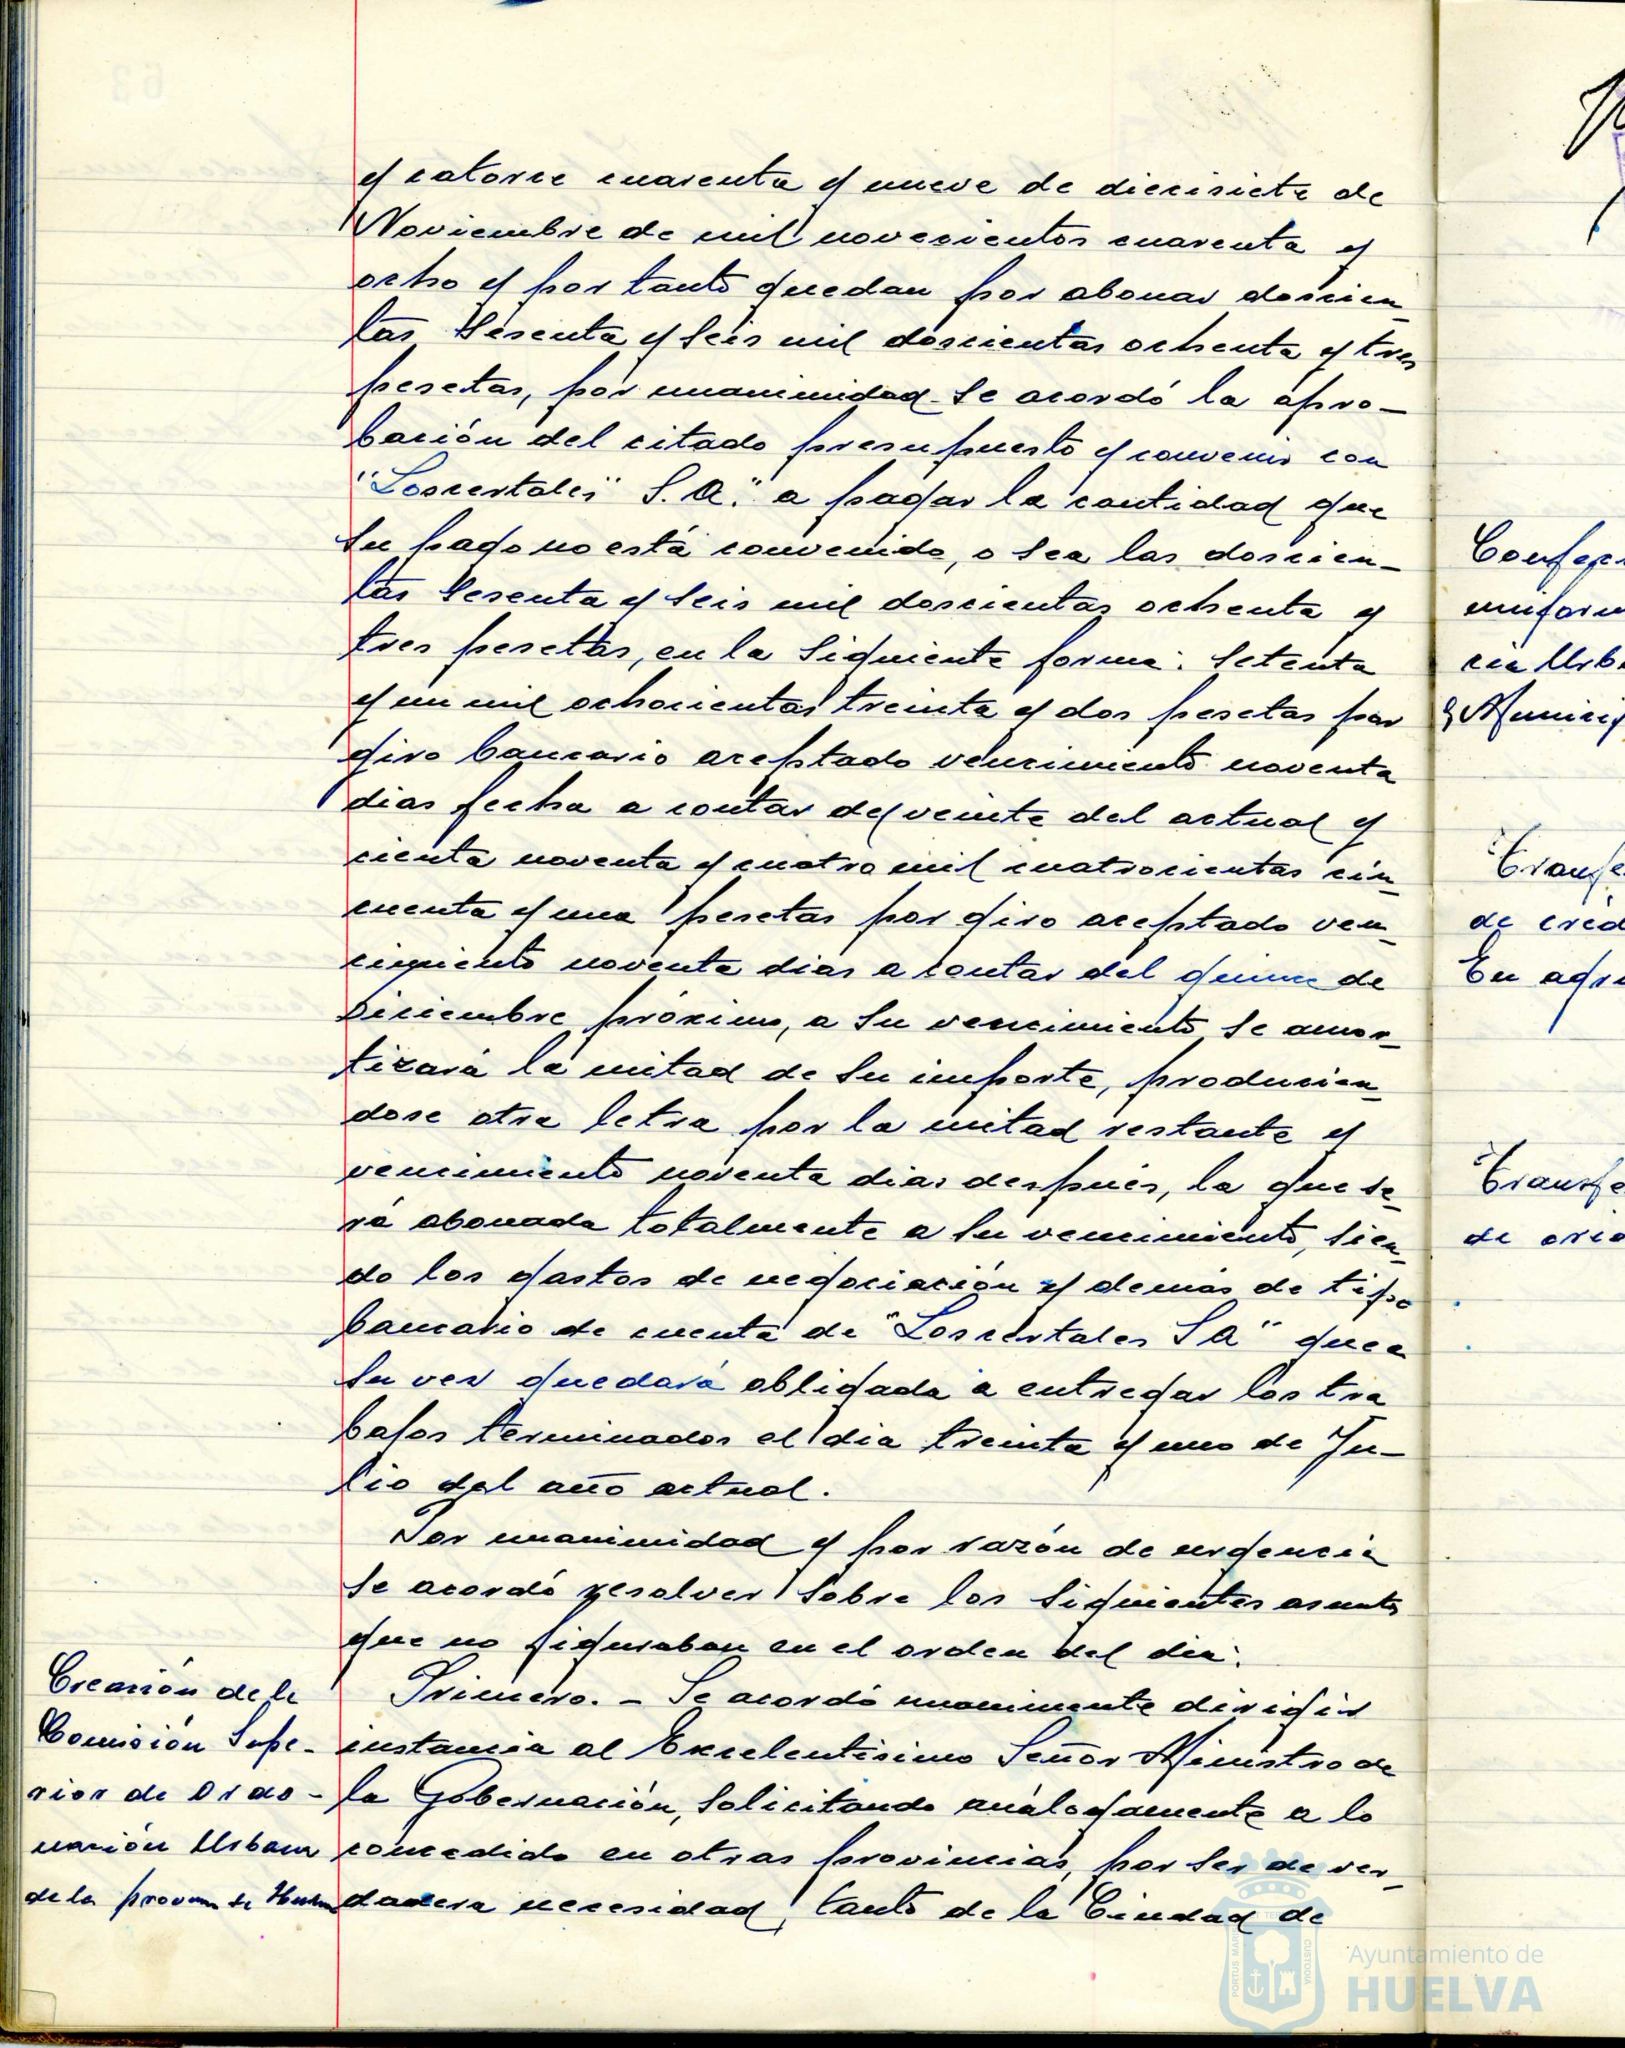 y catorce cuarenta y nueve de diecisiete de
Noviembre de mil novecientos cuarenta y
ocho y por tanto quedan por abonar doscien-
tas sesenta y seis mil doscientas ochenta y tres
pesetas, por unanimidad se acordó la apro-
bación del citado presupuesto y convenir con
"Loscertales" S.A." a pagar la cantidad que
su pago no está convenido, o sea las doscien-
tas sesenta y seis mil doscientas ochenta y
tres pesetas, en la siguiente forma: setenta
y un mil ochocientas treinta y dos pesetas por
giro bancario aceptado vencimiento noventa
dias fecha a contar del veinte del actual y
cienta noventa y cuatro mil cuatrocientas cin-
cuenta y una pesetas por giro aceptado ven-
cimiento noventa dias a contar del quince de
Diciembre próximo, a su vencimiento se amor-
tizará la mitad de su importe, producien-
dose otra letra por la mitad restante y
vencimiento noventa dias después, la que se-
rá abonada totalmente a su vencimiento, sien-
do los gastos de negociación y demás de tipo
bancario de cuenta de "Loscertales S A" que a
su vez quedará obligada a entregar los tra
bajos terminados el dia treinta y uno de Ju-
lio del año actual.
Por unanimidad y por razón de urgencia
se acordó resolver sobre los siguientes asuntos
que no figuraban en el orden del dia:
Creación de la
Comisión Supe-
rior de Orde-
nación Urbana
de la provin de Huelva
Primero. - Se acordó unanimente dirigir
instancia al Excelentísimo Señor Ministro de
la Gobernación, solicitando análogamente a lo
concedido en otras provincias, por ser de ver-
dadera necesidad, tanto de la Ciudad de
Confec
uniform
cia Urba
y Municip
Transfe
de créd
En agr
Transfe
de créd
PORTUS MARIS
CUSTODIA
Ayuntamiento de
HUELVA